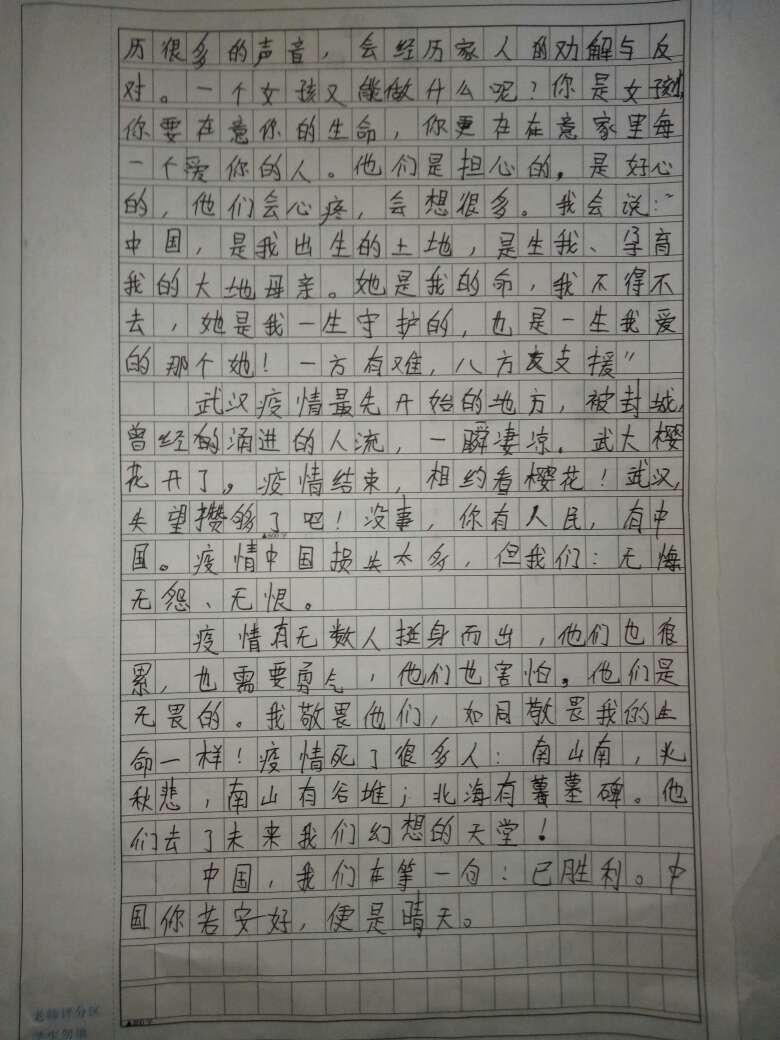 历很多的声音，会经历家人的劝解与反
对。一个女孩又能做什么呢？你是女孩，
你要在意你的生命，你更在在意家里每
一个爱你的人。他们是担心的，是好心
的，他们会心疼，会想很多。我会说：“
中国，是我出生的土地，是生我、孕育
我的大地母亲。她是我的命，我不得不
去，她是我一生守护的，也是一生我爱
的那个她！一方有难，八方支援”
武汉疫情最先开始的地方，被封城，
曾经的涌进的人流，一瞬凄凉。武大樱
花开了，疫情结束，相约看樱花！武汉，
失望攒够了吧！没事，你有人民，有中
▲600字
国。疫情中国损失太多，但我们：无悔
无怨、无恨。
疫情有无数人挺身而出，他们也很
累，也需要勇气，他们也害怕。他们是
无畏的。我敬畏他们，如同敬畏我的生
命一样！疫情死了很多人：南山南，北
秋悲，南山有谷堆；北海有墓碑。他
们去了未来我们幻想的天堂！
中国，我们在等一句：已胜利。中
国你若安好，便是晴天。
▲800字
老师评分区
学生勿填